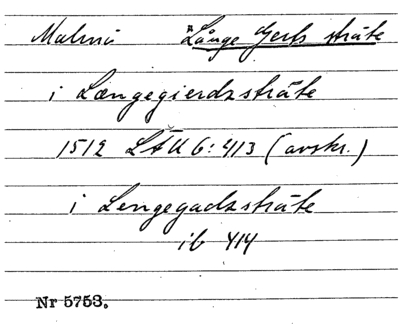 Malmö Långe Gerts sträte
i Længegierdzsträte
1512 LÄU 6: 413 (avskr.)
i Lengegadzsträte
ib 414
Nr 5753.